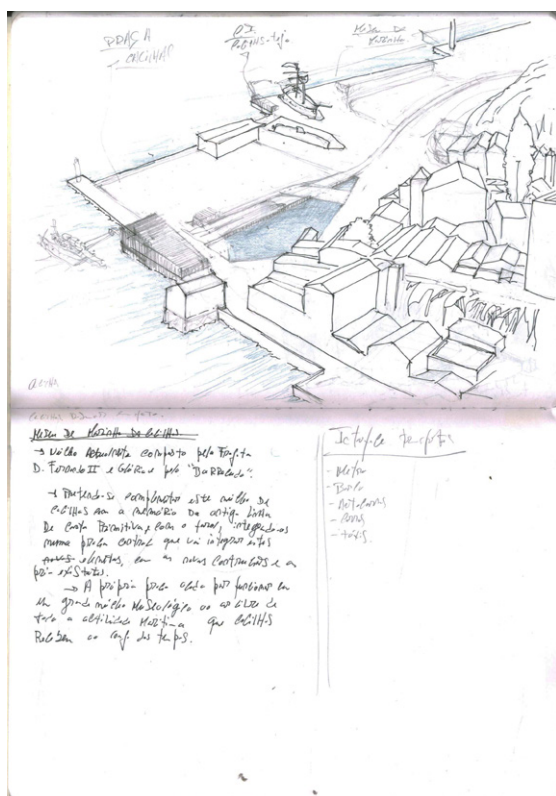 PRAÇA
CACILHAS
Museu De
Marinha
Museu De Marinha De Cacilhas
→ Núcleo Actualmente composto pela Fragata
D. Fernando II e Glória e pelo "Barracuda".
→ Pretende-se complementar este núcleo De
Cacilhas com a memória Da antiga Linha
De Costa Primitiva, e com o farol, integrando-os
numa praça central que vai integrar estes
elementos, com as novas construções e as
pré-existentes.
→ A própria praça acaba por funcionar como
um grande núcleo Museológico ao ar livre de
toda a actividade Marítima que Cacilhas
ao longo dos tempos.
Interface transportes
- Metro
- Barco
- Autocarros
- Carros
- táxis.